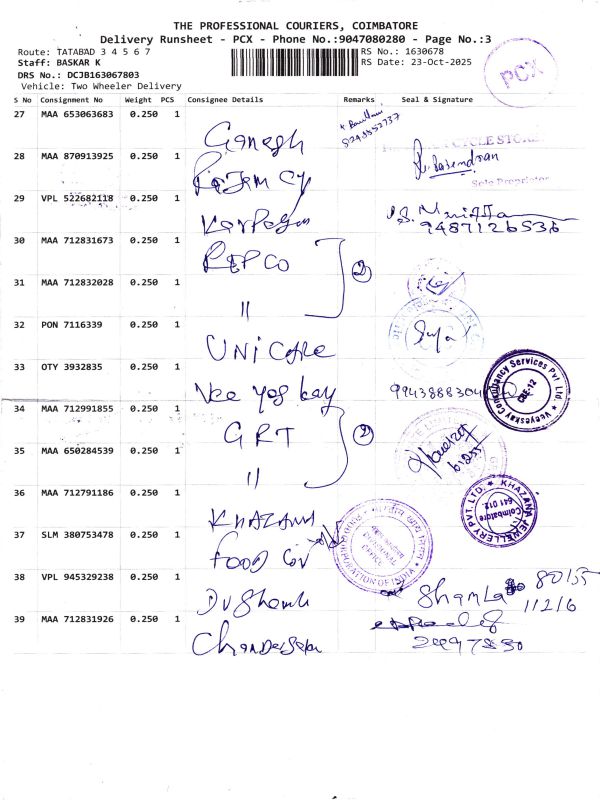 THE PROFESSIONAL COURIERS, COIMBATORE
Delivery Runsheet - PCX - Phone No.:9047080280 - Page No.:3
Route: TATABAD 3 4 5 6 7
RS No.: 1630678
Staff: BASKAR K
RS Date: 23-Oct-2025
DRS No.: DCJB163067803
Vehicle: Two Wheeler Delivery
PCX
S No Consignment No Weight PCS Consignee Details Remarks Seal & Signature
27 MAA 653063683 0.250 1 Ganesh
CYCLE STORE
28 MAA 870913925 0.250 1
Sole Proprietor
29 VPL 522682118 0.250 1
9487126536
30 MAA 712831673 0.250 1 REPCO 2
31 MAA 712832028 0.250 1 "
32 PON 7116339 0.250 1 UNi Cafe
33 OTY 3932835 0.250 1 Vee yes kay 9943888304
Veeyeskay Consultancy Services Pvt Ltd
CBE-12
34 MAA 712991855 0.250 1 GRT 2
35 MAA 650284539 0.250 1 "
36 MAA 712791186 0.250 1 KHAZANA
KHAZANA JEWELLERY PVT. LTD.
Coimbatore
641 012
37 SLM 380753478 0.250 1 FOOD Cor
CORPORATION OF INDIA
DIVISIONAL
OFFICE
38 VPL 945329238 0.250 1 Shamla 80155
11216
39 MAA 712831926 0.250 1